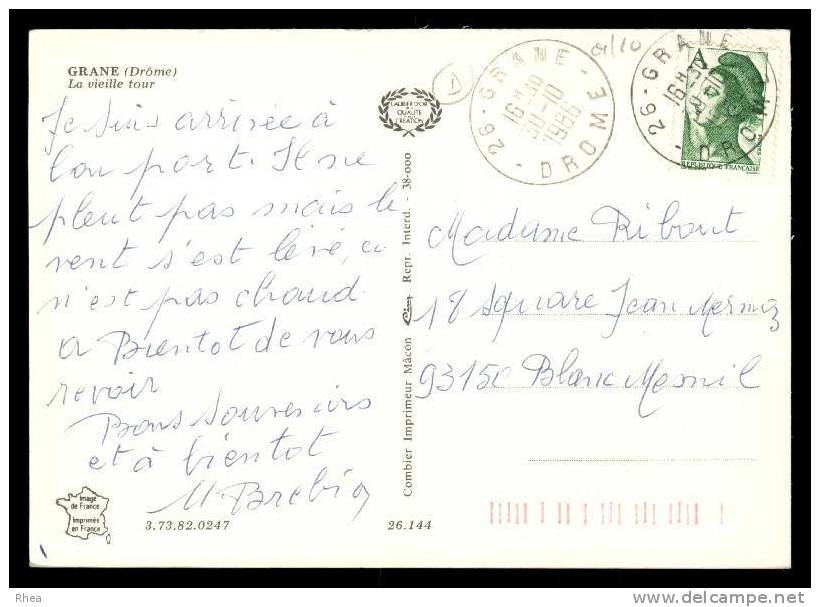 GRANE (Drôme)
La vieille tour
Je suis arrivée à
bon port. Il ne
pleut pas mais le
vent s'est levé, ce
n'est pas chaud.
a Bientot de vous
revoir
Bons souvenirs
et à bientot
M. Brebion
Image
de France
Imprimée
en France
3.73.82.0247
26.144
LAURIER D'OR
DE LA
QUALITÉ
CRÉATION
Combier Imprimeur Mâcon
Repr. Interd. - 38-000
26 - GRANE - DROME -
16 H 30
30-10
1986
26 - GRANE - DROME -
16 H 30
A
REPUBLIQUE FRANÇAISE
Madame Ribout
18 Square Jean Mermoz
93150 Blanc Mesnil
Rhea
www.delcampe.net